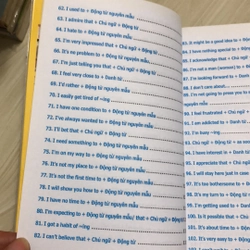 62. I used to + Động từ nguyên mẫu
63. I admire that + Chủ ngữ + Động từ
64. I hate to + Động từ nguyên mẫu
65. I'm very impressed that + Chủ ngữ + Động từ
66. It's no problem to + Động từ nguyên mẫu
67. I'm just telling you that + Chủ ngữ + Động từ
68. I feel very close to + Danh từ
69. I'd rather + Động từ nguyên mẫu
70. I easily get tired of +ing
71. I have one condition to + Động từ nguyên mẫu
72. I've always wanted to + Động từ nguyên mẫu
73. I'll bet that + Chủ ngữ + Động từ
74. I need something to + Động từ nguyên mẫu
75. I'm on my way to + Động từ nguyên mẫu
76. It's not my place to + Động từ nguyên mẫu
77. It's not the first time to + Động từ nguyên mẫu
78. I will show you how to + Động từ nguyên mẫu
79. I have no time to + Động từ nguyên mẫu
80. I'm expecting to + Động từ nguyên mẫu/ that + Chủ ngữ + Động từ
81. I got a habit of +ing
82. I can't believe that + Chủ ngữ + Động từ
83. It might be a good idea to + Động
84. I have nothing special to +
85. I acknowledge that +
86. I am not a nice
87. I'm looking forward to +
88. I don't care about
89. I'm not going to
90. I feel frustrated + Chủ ngữ
91. I am addicted to + Danh từ
92. I'm busy +ing
93. I am hesitant to + Động
94. I have interest in + Danh từ
95. I appreciate that + Chủ
96. I will stay here just in case
97. I am about to + Động từ
98. It's your turn to + Động
99. It's my turn to + Động
100. I am doing my best to
101. It's possible that + Chủ
102. It's about time to + Động
103. I can't stand that + Chủ
104. I cannot